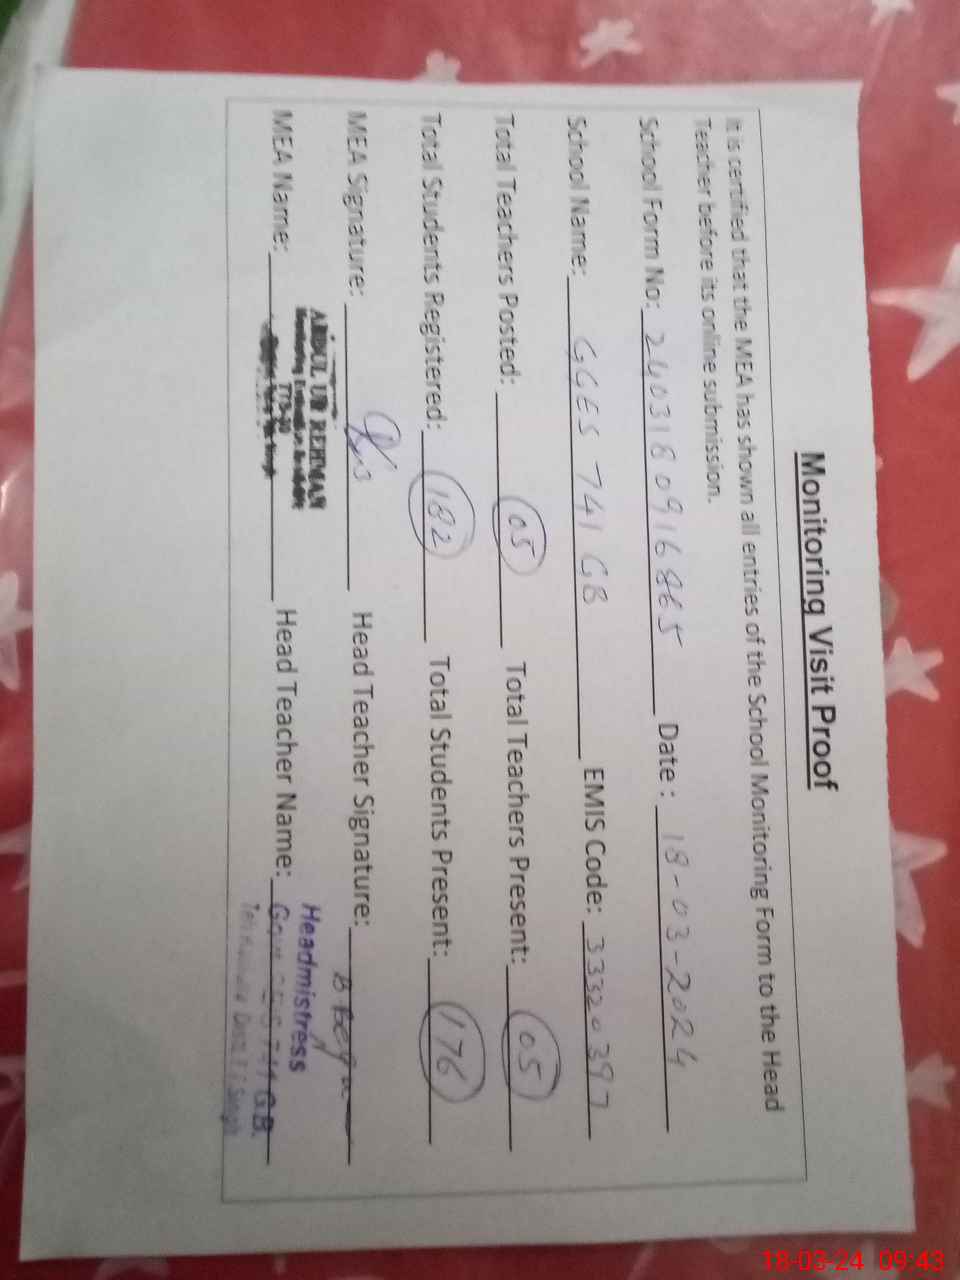 Monitoring Visit Proof
It is certified that the MEA has shown all entries of the School Monitoring Form to the Head
Teacher before its online submission.
School Form No: 2403180916865 Date : 18-03-2024
School Name: GGES 741 GB EMIS Code: 33320397
Total Teachers Posted: 05 Total Teachers Present: 05
Total Students Registered: 182 Total Students Present: 176
MEA Signature: Head Teacher Signature:
ABDUL UR REHMAN
MEA Name: Head Teacher Name:
Headmistress
G.B.
18-03-24 09:43